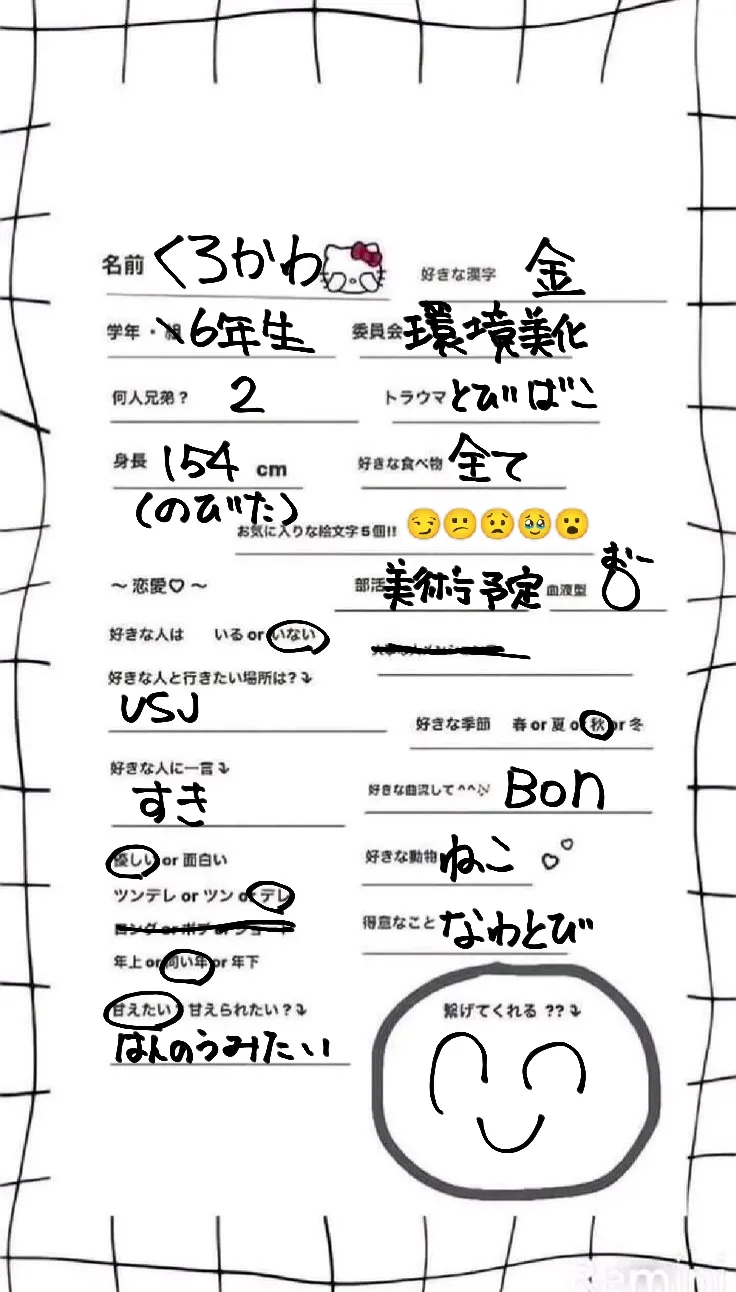 名前 くろかわ
好きな漢字 金
学年・組 6年生
委員会 環境美化
何人兄弟? 2
トラウマ とびばこ
身長 154 cm
(のびた)
好きな食べ物 全て
お気に入りな絵文字5個!! 😏😕😟🥹😮
~恋愛♡~
部活 美術予定
血液型 O
おー
好きな人は いる or いない
好きな人と行きたい場所は?⤵
USJ
好きな季節 春 or 夏 or 秋 or 冬
好きな人に一言⤵
すき
好きな曲流して^^♪ Bon
優しい or 面白い
好きな動物 ねこ ♡♡
ツンデレ or ツン or デレ
ロング or ボブ or ショート
得意なこと なわとび
年上 or 同い年 or 年下
甘えたい?甘えられたい?⤵
はんのうみたい
繋げてくれる ??⤵